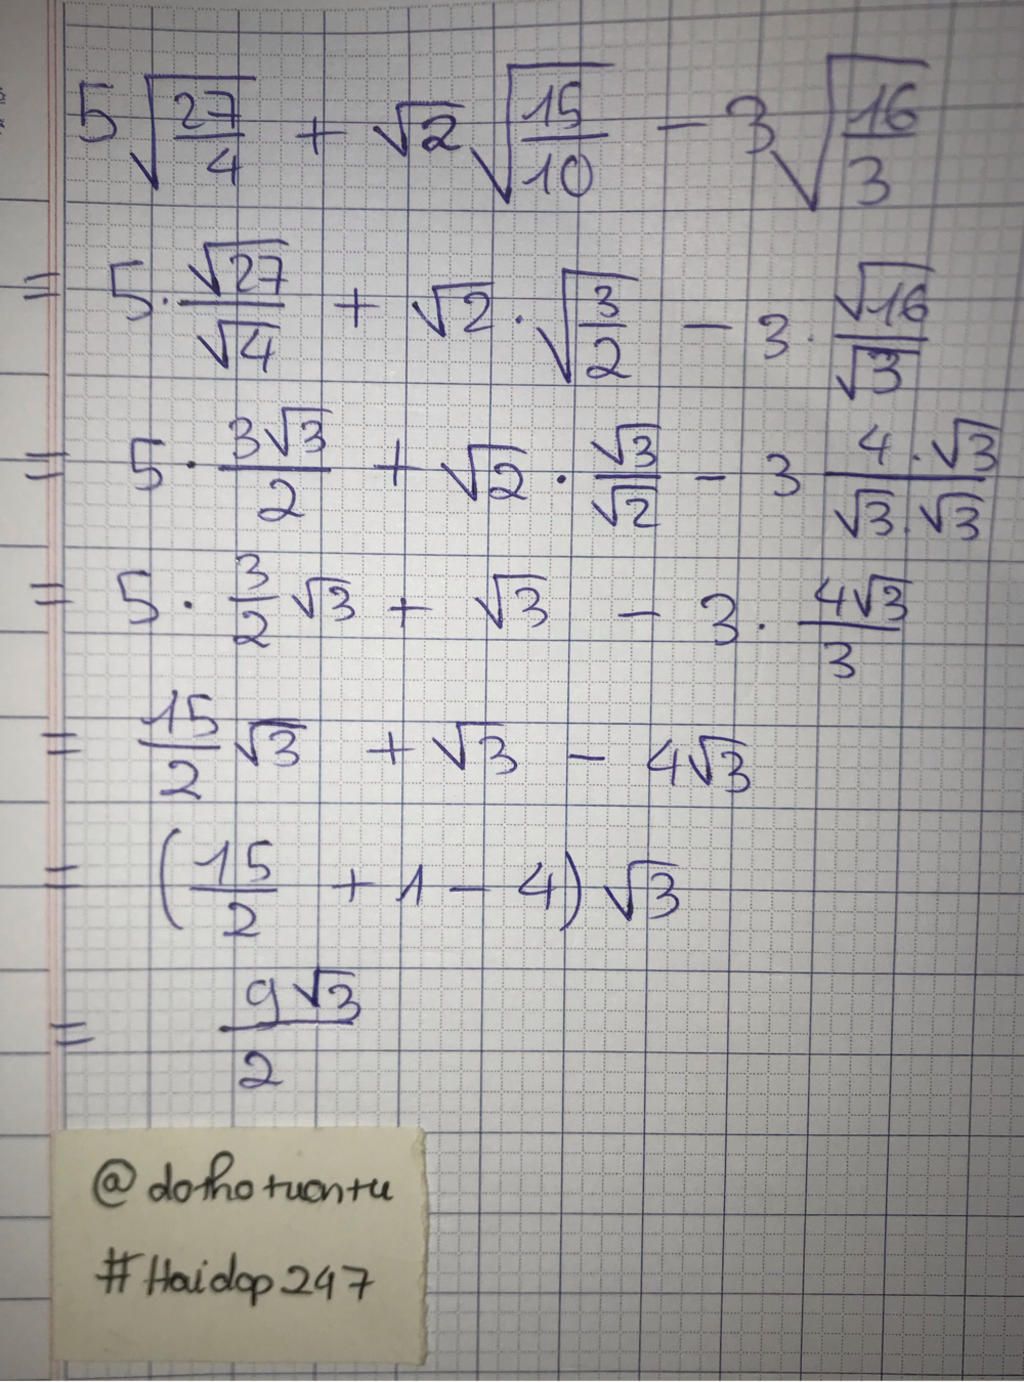 5√(27/4) + √2 √(15/10) - 3√(16/3)
= 5 · √27/√4 + √2 · √(3/2) - 3 · √16/√3
= 5 · 3√3/2 + √2 · √3/√2 - 3 4·√3/√3.√3
= 5 · 3/2 √3 + √3 - 3 · 4√3/3
= 15/2 √3 + √3 - 4√3
= (15/2 + 1 - 4) √3
= 9√3/2
@dothotuantu
#Haidap247